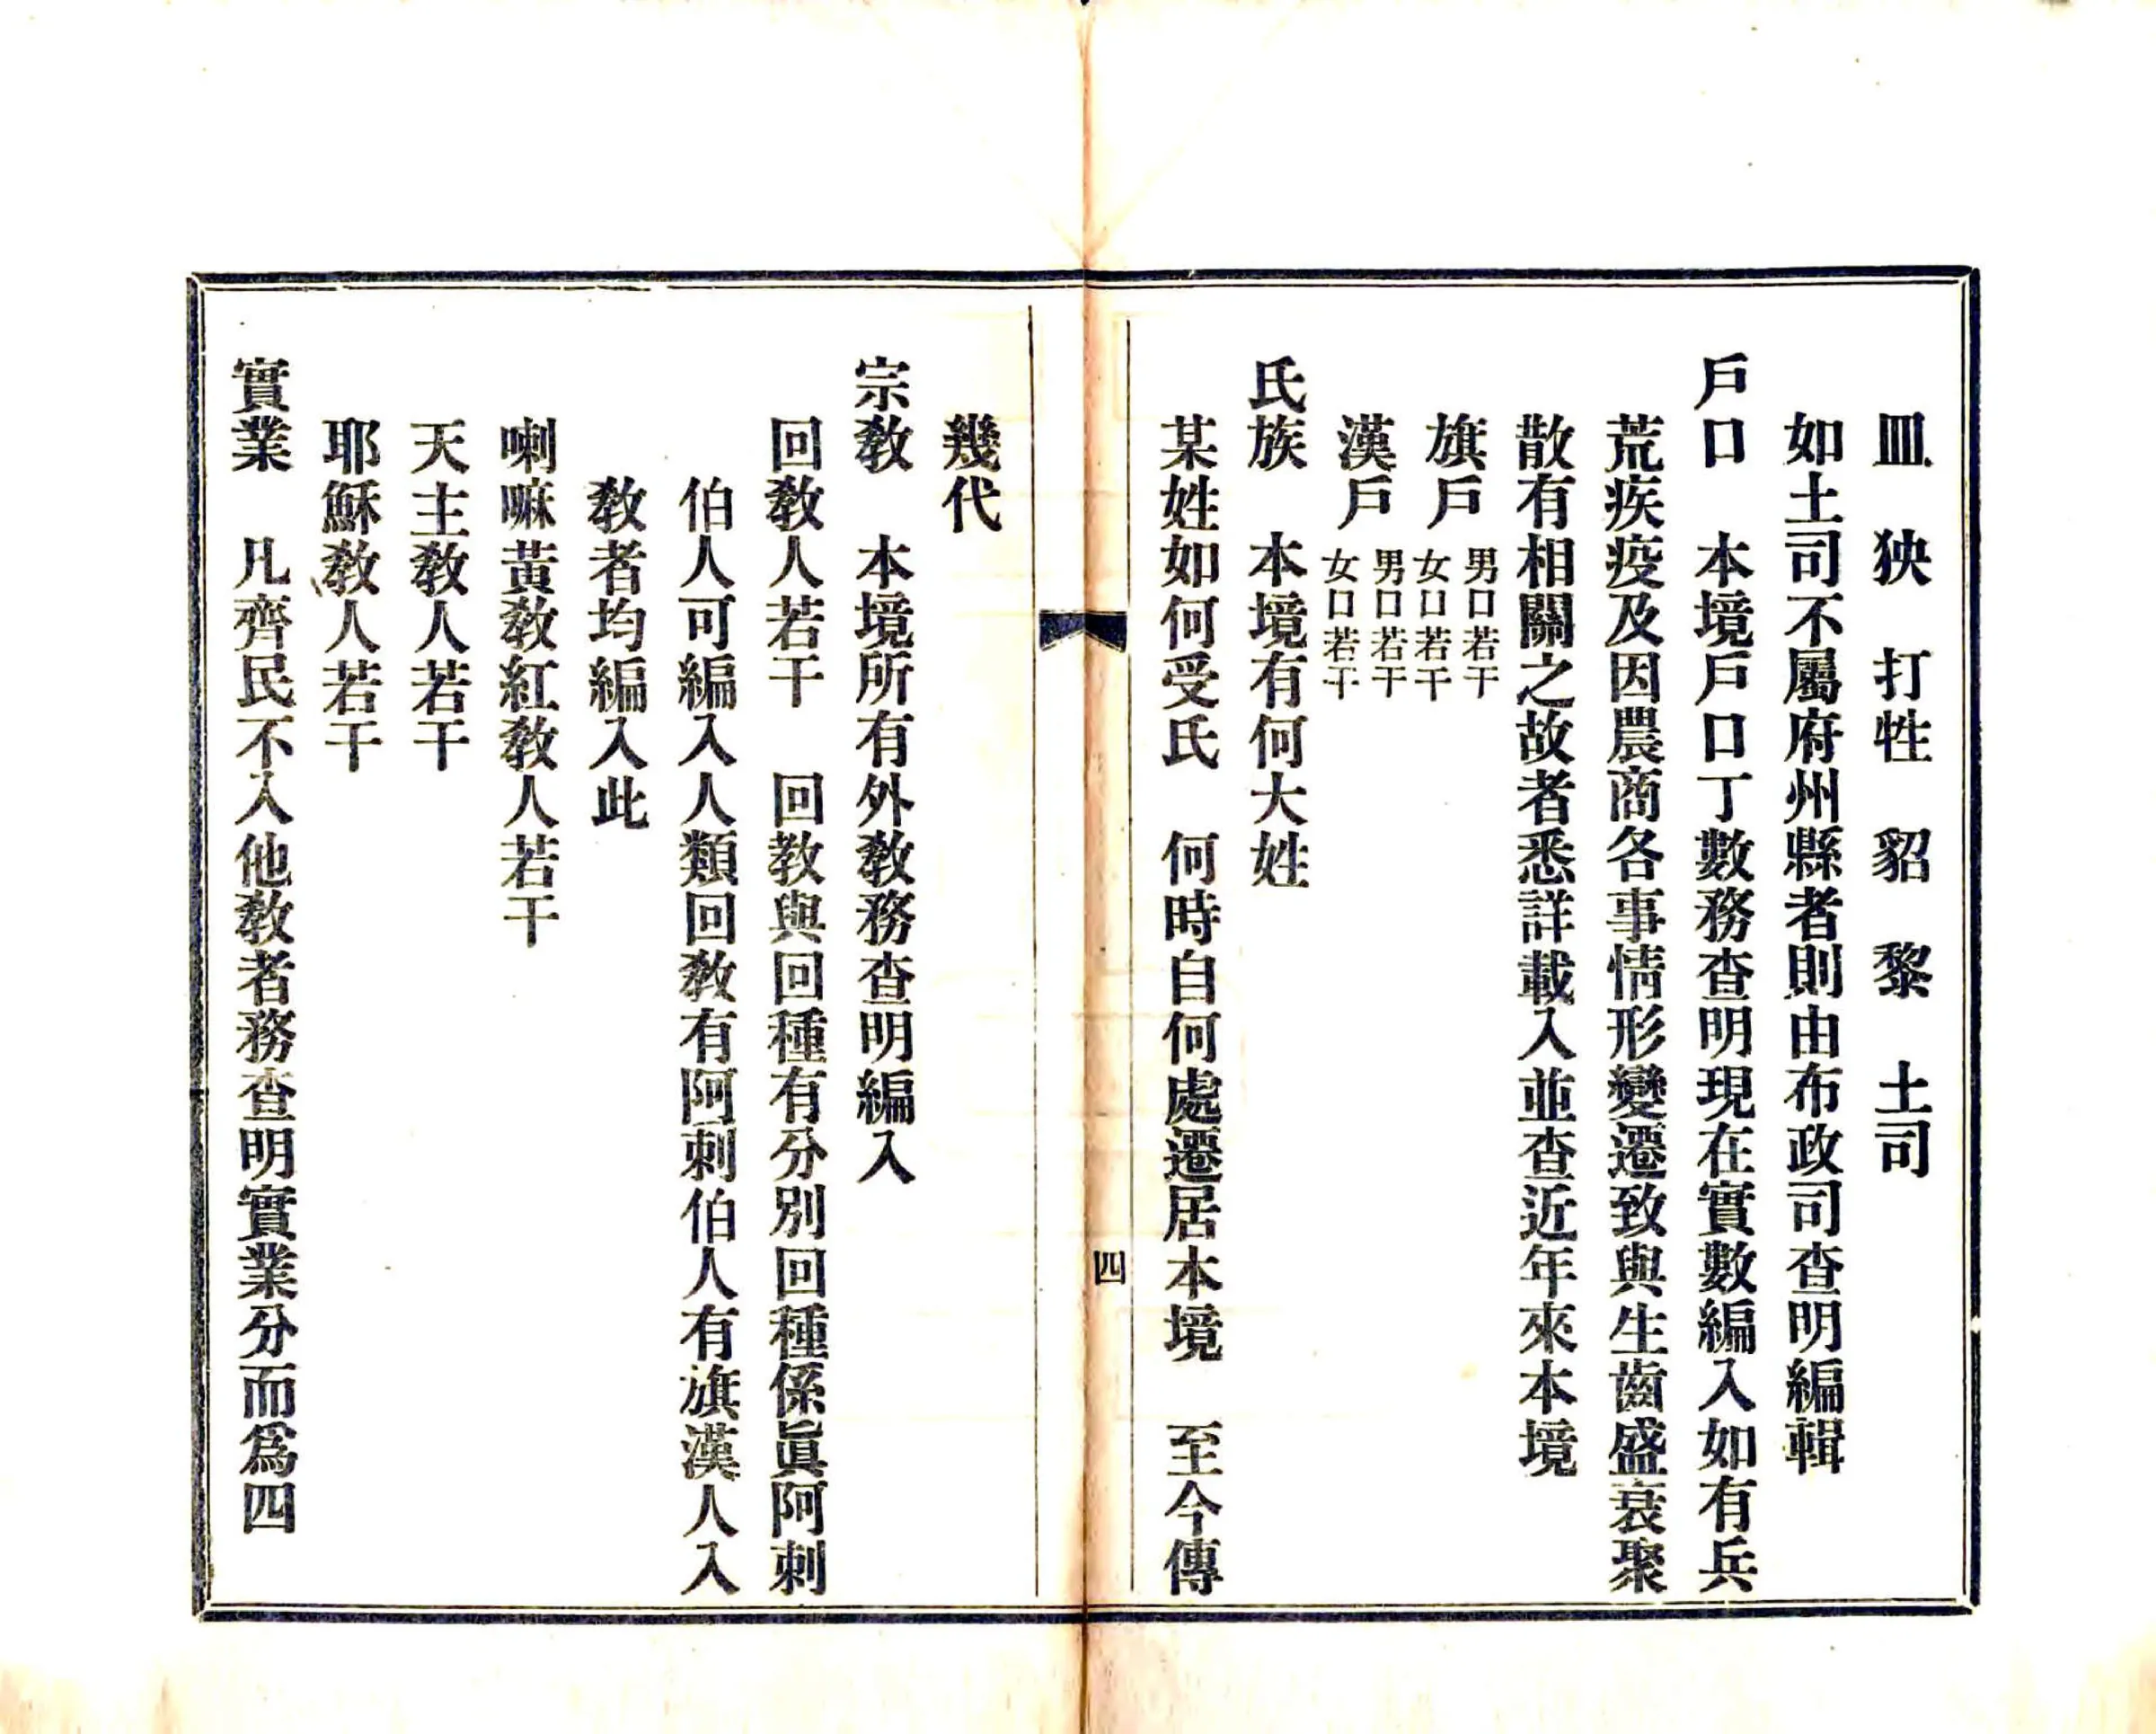 皿　狹　打牲　貂　黎　土司
如土司不屬府州縣者則由布政司查明編輯
戶口　本境戶口丁數務查明現在實數編入如有兵
荒疾疫及因農商各事情形變遷致與生齒盛衰聚
散有相關之故者悉詳載入並查近年來本境
旗戶　男口若干　女口若干
漢戶　男口若干　女口若干
氏族　本境有何大姓
某姓如何受氏　何時自何處遷居本境　至今傳
四
幾代
宗教　本境所有外教務查明編入
回教人若干　回教與回種有分別回種係眞阿刺
伯人可編入人類回教有阿刺伯人有旗漢人入
教者均編入此
喇嘛黃教紅教人若干
天主教人若干
耶穌教人若干
實業　凡齊民不入他教者務查明實業分而爲四